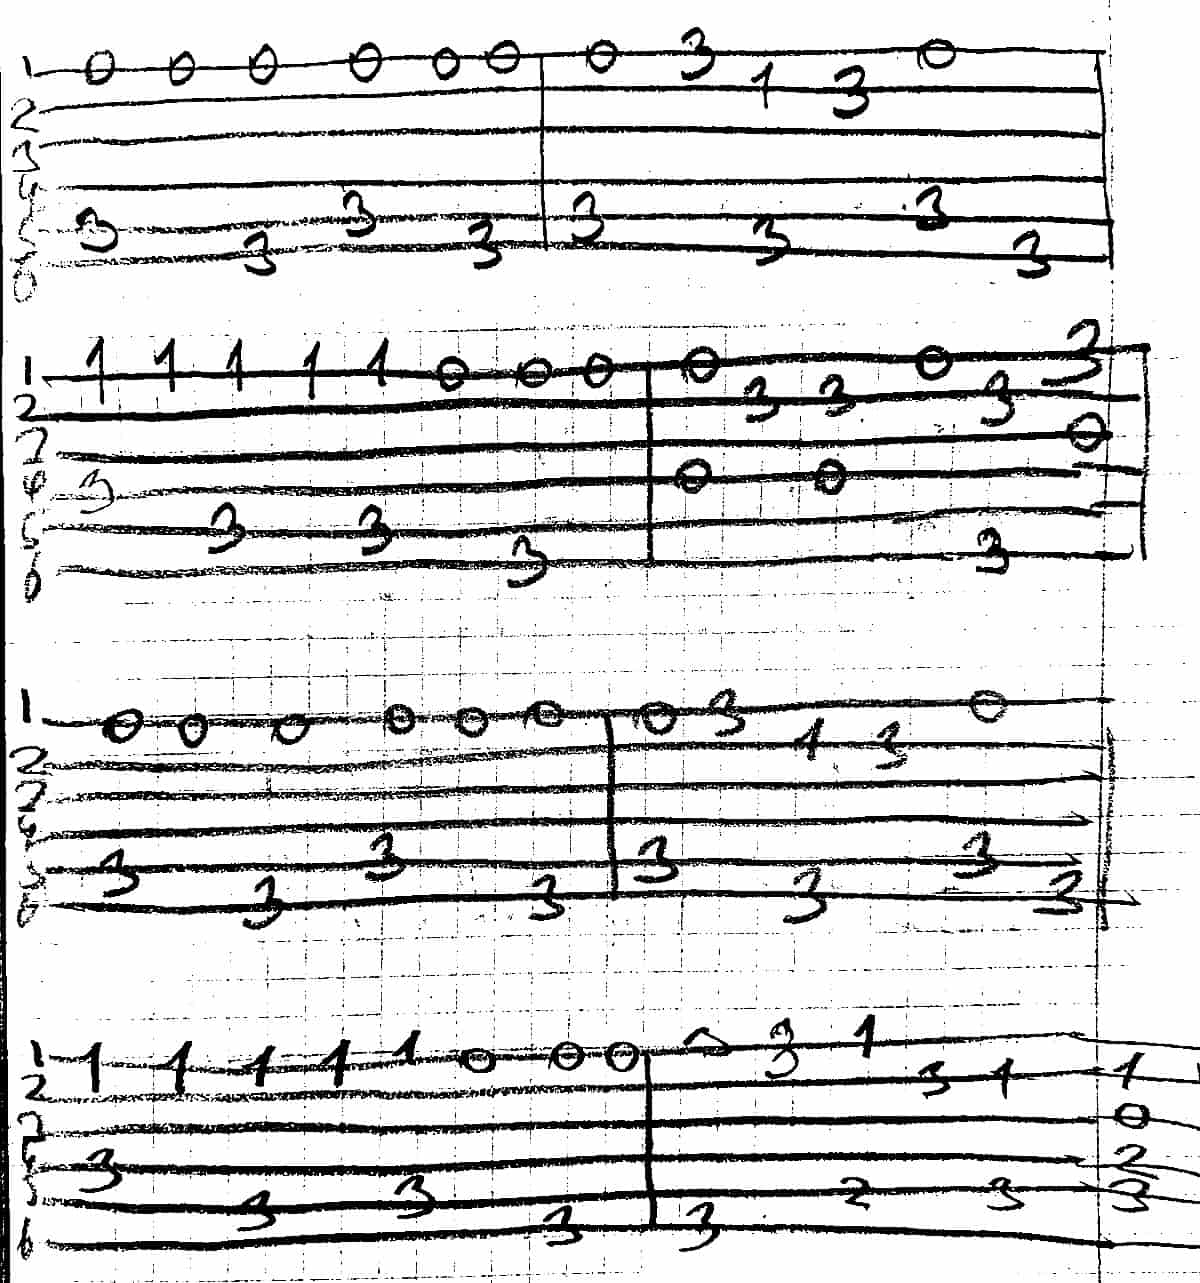 1 0 0 0 0 0 0 0 3 0
2 1 3
3
4
5 3 3 3 3
6 3 3 3 3
1 1 1 1 1 1 0 0 0 0 0 3
2 3 3 3
3 0
4 3 0 0
5 3 3
6 3 3
1 0 0 0 0 0 0 0 3 0
2 1 3
3
4
5 3 3 3 3
6 3 3 3 3
1 1 1 1 1 1 0 0 0 0 3 1
2 3 1 1
3 0
4 3 2
5 3 3 2 3 3
6 3 3